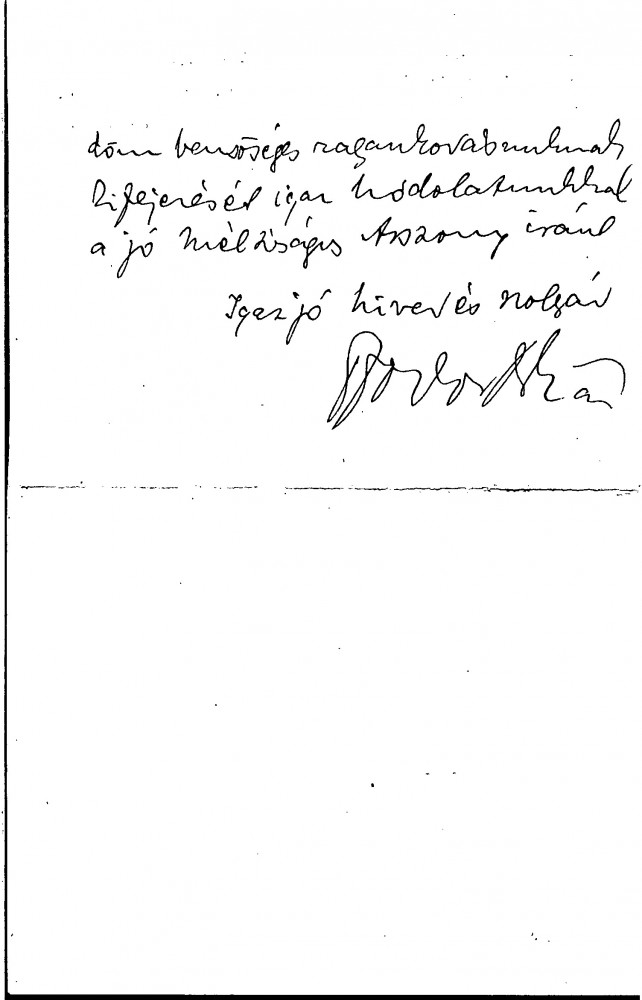 döm bensőséges ragaszkodásunknak
kifejezését igaz hódolatunkkal
a jó Méltóságos Asszony iránt
Igaz jó hived és szolgád